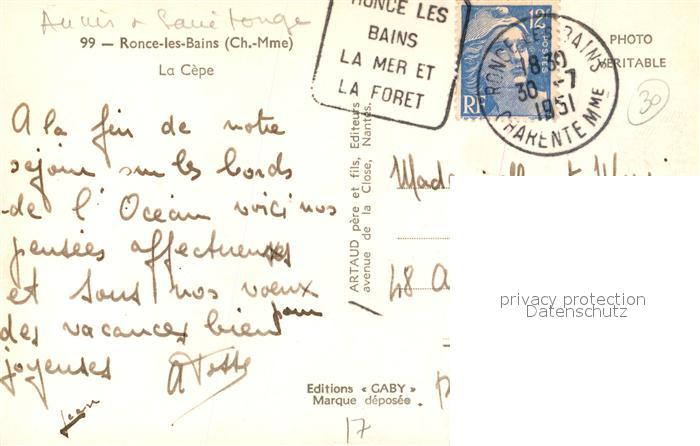 Aunis & Saintonge
99 — Ronce-les-Bains (Ch.-Mme)
La Cèpe
RONCE LES
BAINS
LA MER ET
LA FORET
12F
POSTES
RF
RONCE-LES-BAINS
18 30
30 -7
1951
CHARENTE MME
PHOTO
VERITABLE
30
A la fin de notre
séjour sur les bords
de l'Océan voici nos
pensées affectueuses
et tous nos vœux
pour
des vacances bien
joyeuses
Jean
ARTAUD père et fils, Editeurs
avenue de la Close, Nantes.
48
privacy protection
Datenschutz
Editions « GABY »
Marque déposée.
17